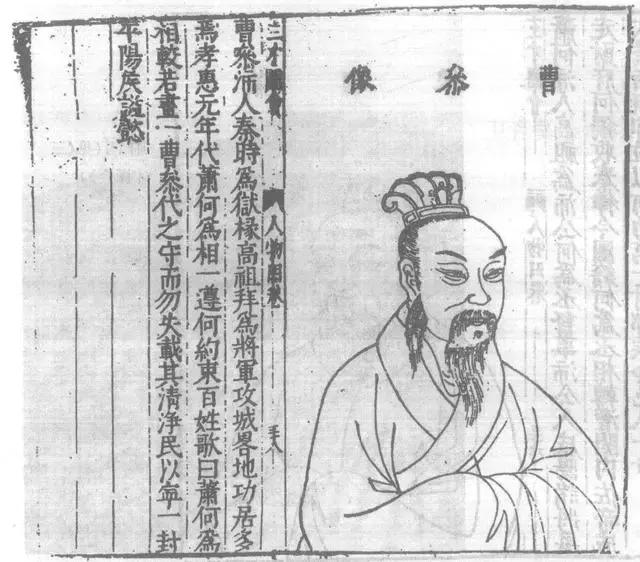 曹叅像
三才圖會
人物 卷
曹叅沛人秦時爲獄椽高祖拜爲將軍攻城畧地功居多
焉孝惠元年代蕭何爲相一遵何約束百姓歌曰蕭何爲
相較若畫一曹叅代之守而勿失載其清净民以寧一封
平陽侯諡懿